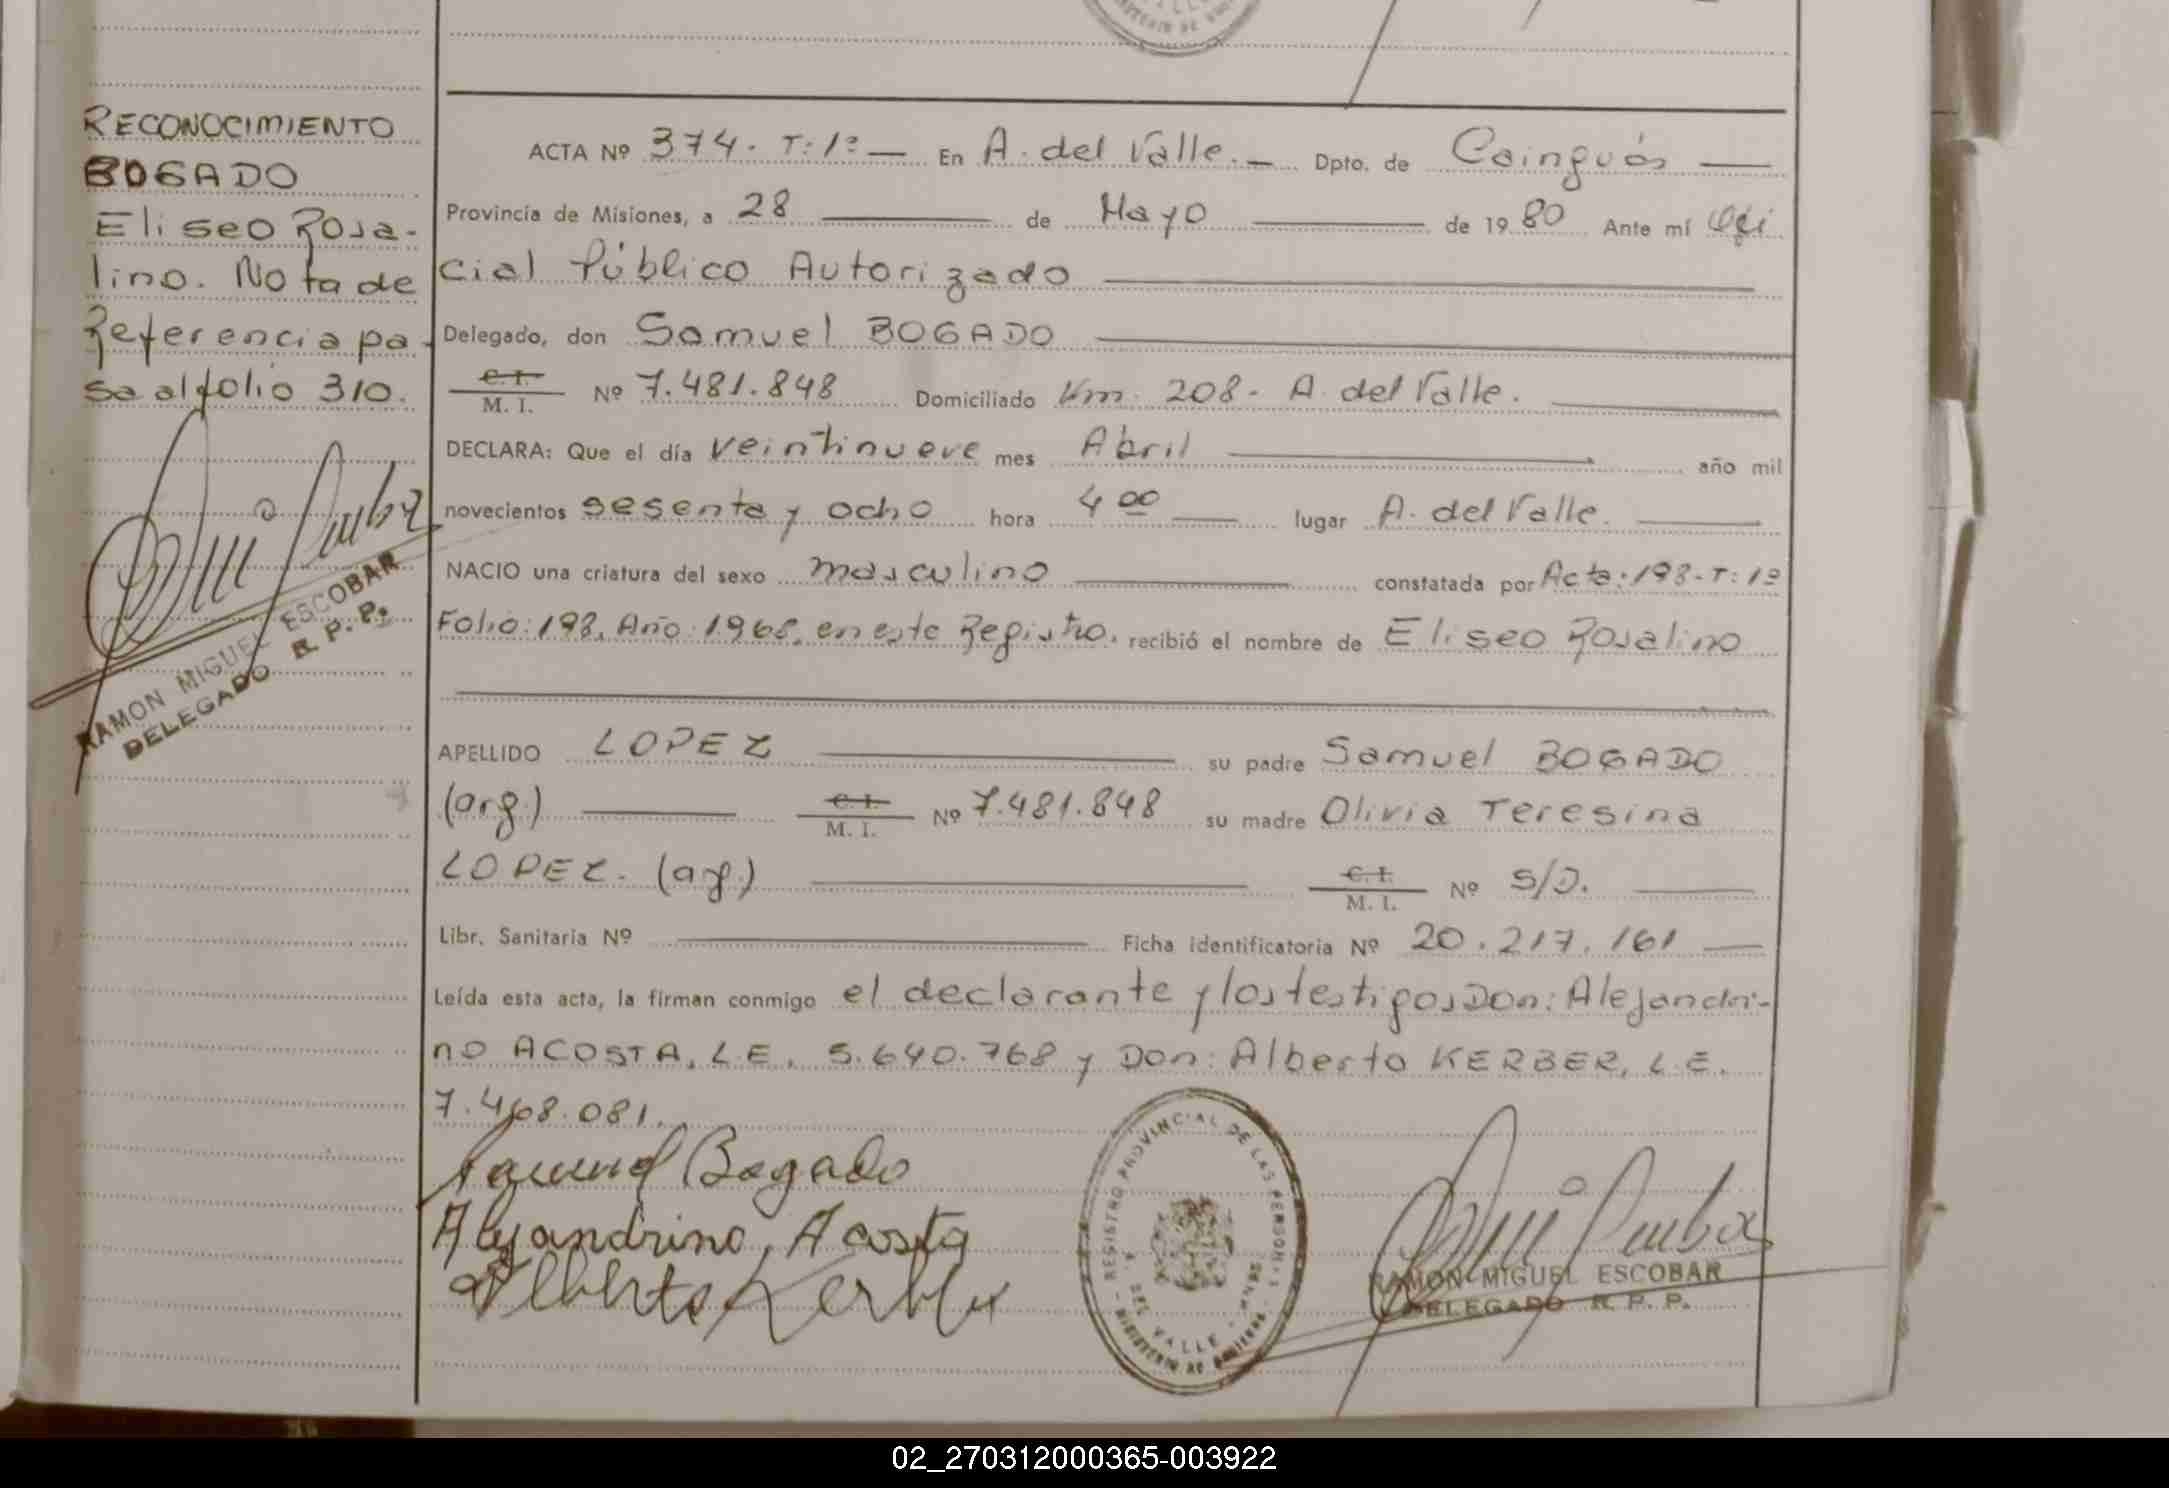 RECONOCIMIENTO
BOGADO
Eliseo Rosa-
lino. Nota de
Referencia pa-
sa al folio 310.
RAMON MIGUEL ESCOBAR
DELEGADO R. P. P.
ACTA Nº 374. T: 1º — En A. del Valle. — Dpto. de Cainguás —
Provincia de Misiones, a 28 — de Mayo — de 1980 Ante mí Ofi
cial Público Autorizado —
Delegado, don Samuel BOGADO —
C.I. / M. I. Nº 7.481.848 Domiciliado Km. 208 - A. del Valle. —
DECLARA: Que el día veintinueve mes Abril — año mil
novecientos sesenta y ocho hora 4 00 — lugar A. del Valle. —
NACIO una criatura del sexo masculino — constatada por Acta: 198 - T: 1º
Folio: 198, Año: 1968, en este Registro. recibió el nombre de Eliseo Rosalino
APELLIDO LOPEZ — su padre Samuel BOGADO
(arg.) — C.I. / M. I. Nº 7.481.848 su madre Olivia Teresina
LOPEZ. (arg.) — C.I. / M. I. Nº S/D. —
Libr. Sanitaria Nº — Ficha identificatoria Nº 20.217.161 —
Leída esta acta, la firman conmigo el declarante y los testigos Don: Alejandri-
no ACOSTA, L.E. 5.640.768 y Don: Alberto KERBER, L.E.
7.468.081.
Samuel Bogado
Alejandrino, Acosta
Alberto Kerber
REGISTRO PROVINCIAL DE LAS PERSONAS
A. DEL VALLE
MINISTERIO DE GOBIERNO
RAMON MIGUEL ESCOBAR
DELEGADO R. P. P.
02_270312000365-003922